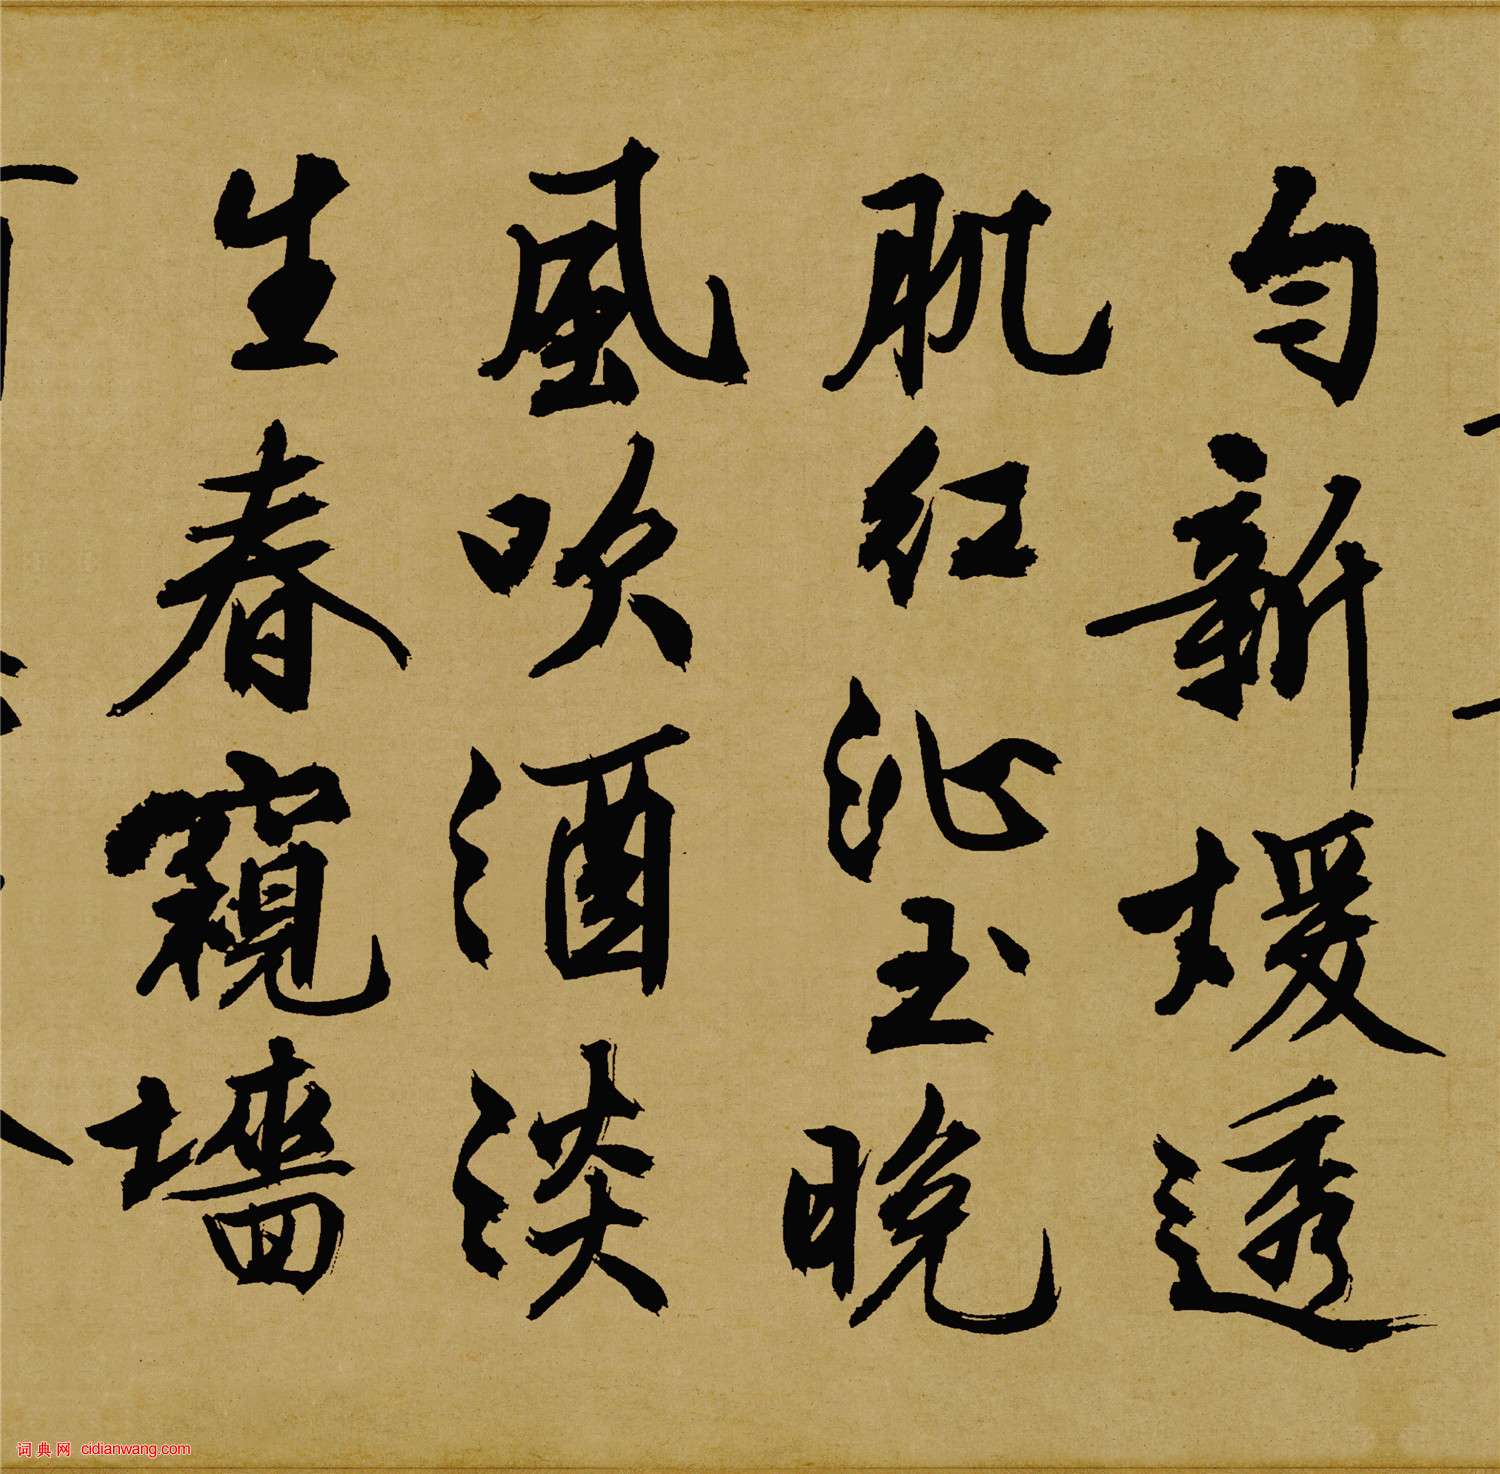 匀新煖透
肌紅沁玉晚
風吹酒淡
生春窺墻
词典网 cidianwang.com